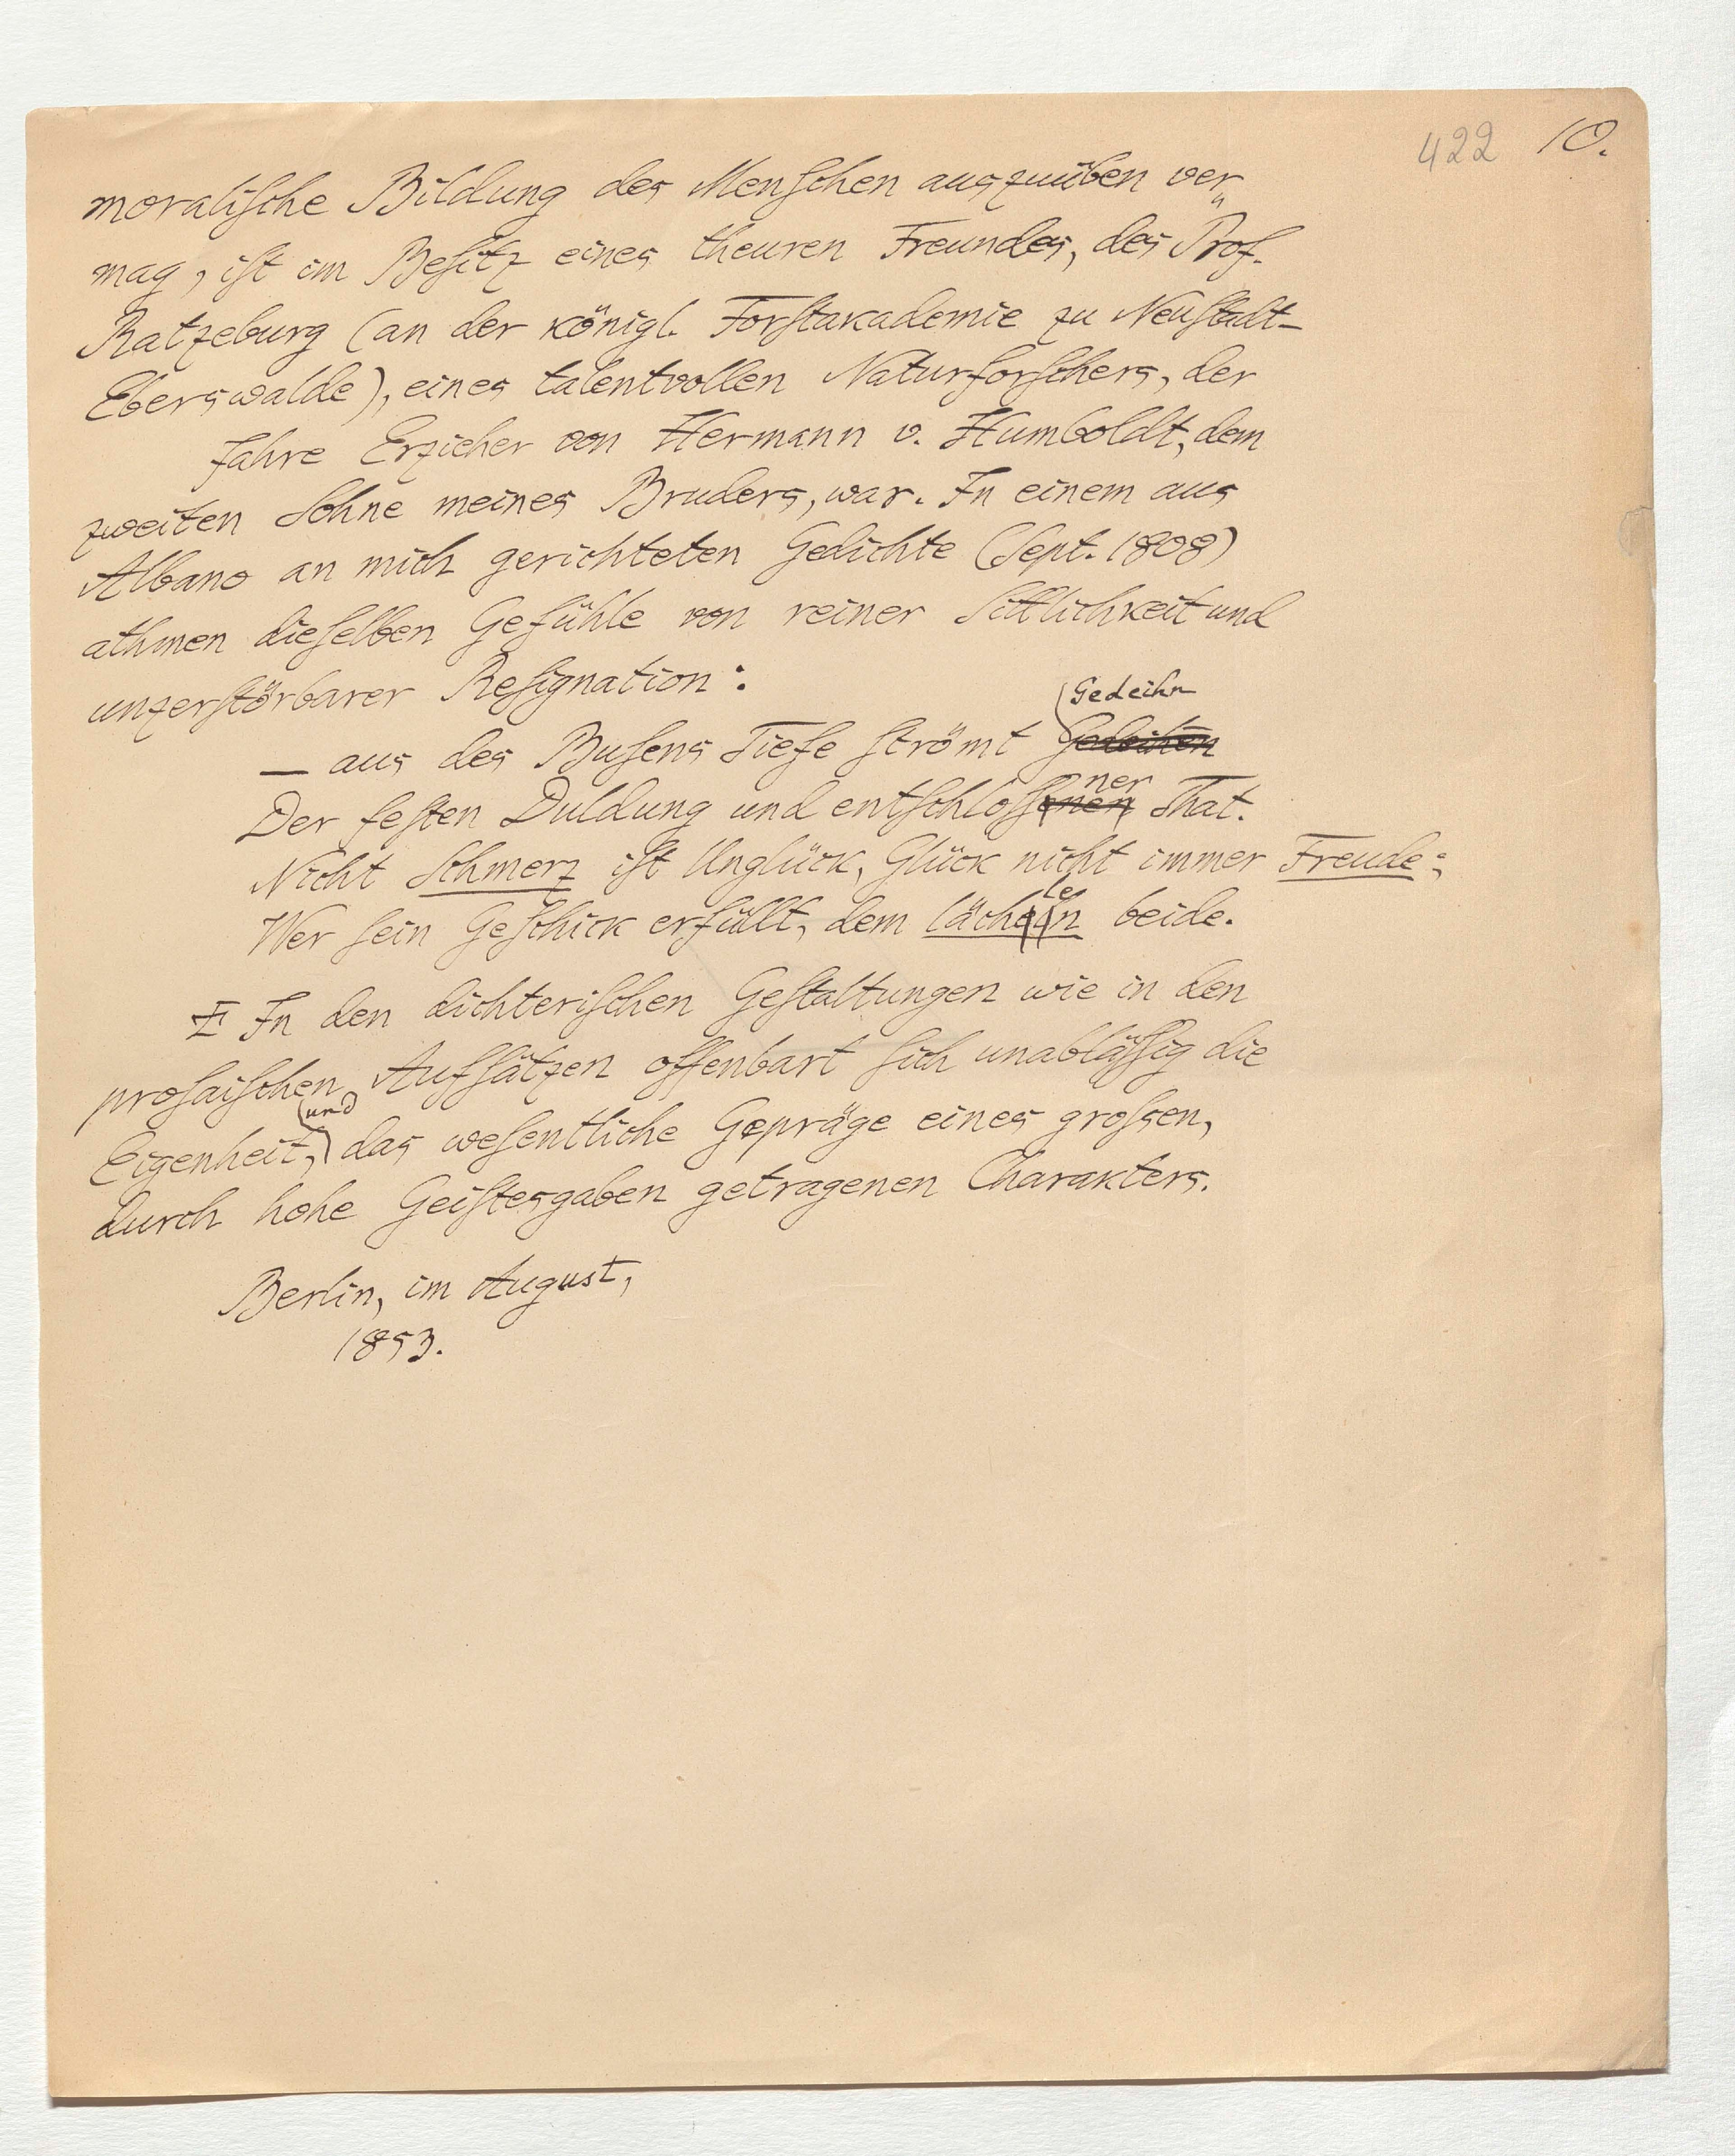 422 10.
moralische Bildung des Menschen auszuüben ver„
mag, ist im Besitz eines theuren Freundes, des Prof.
Ratzeburg (an der königl. Forstakademie zu Neustadt-
Eberswalde), eines talentvollen Naturforschers, der
Jahre Erzieher von Hermann v. Humboldt, dem
zweiten Sohne meines Bruders, war. In einem aus
Albano an mich gerichteten Gedichte (Sept. 1808)
athmen dieselben Gefühle von reiner Sittlichkeit und
unzerstörbarer Resignation:
Gedeihn
— aus des Busens Tiefe strömt Gedeihen
ner
Der festen Duldung und entschlossenen That.
Nicht Schmerz ist Unglück, Glück nicht immer Freude;
le
Wer sein Geschick erfüllt, dem lächeln beide.
In den dichterischen Gestaltungen wie in den
prosaischen Aufsätzen offenbart sich unablässig die
und
Eigenheit, das wesentliche Gepräge eines grossen,
durch hohe Geistesgaben getragenen Charakters.
Berlin, im August,
1853.